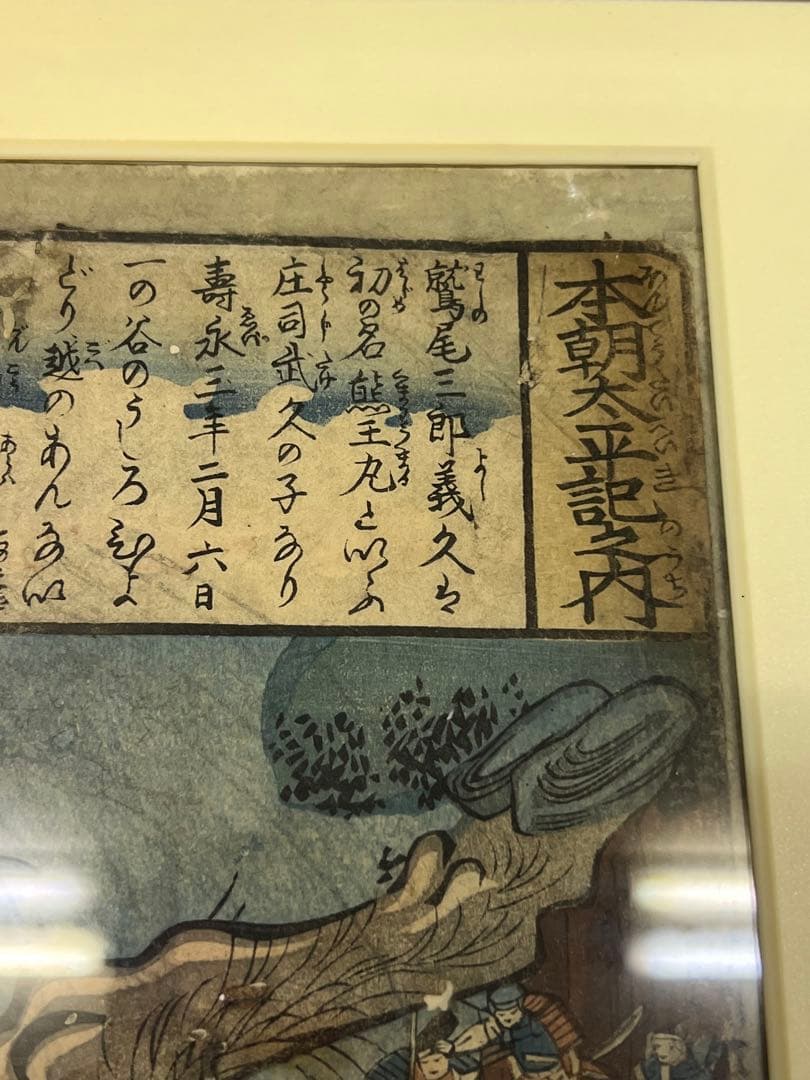 本朝太平記之内
鷲尾三郎義久は
初の名熊王丸といふ
庄司武久の子なり
壽永三年二月六日
一の谷のうしろひよ
どり越のあんない